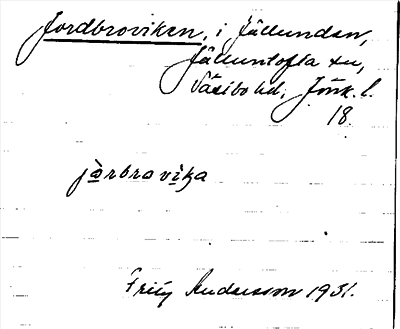 Jordbroviken, i Fällunden,
Källuntofta sn,
Västbo hd, Jönk. l.
18.
jordbrovika
Fritz Andersson 1931.